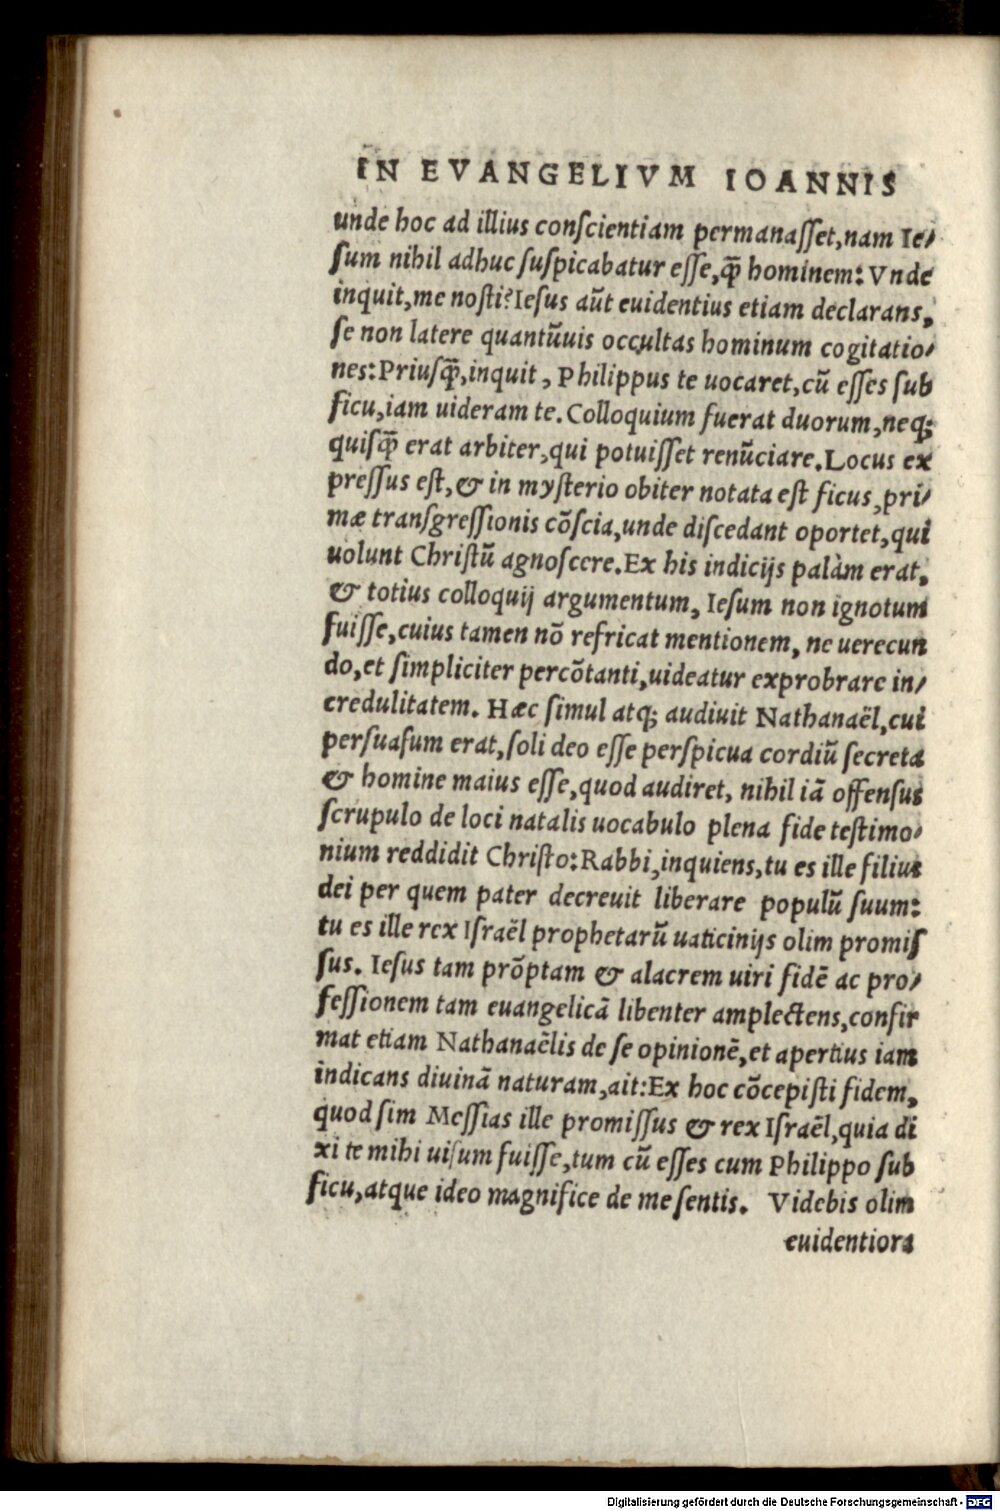 IN EVANGELIVM IOANNIS
unde hoc ad illius conſcientiam permanaſſet,nam Ie⸗
ſum nihil adhuc ſuſpicabatur eſſe,q̃ꝑ hominem: Vnde
inquit,me noſti? Ieſus aūt euidentius etiam declarans,
ſe non latere quantūuis occultas hominum cogitatio⸗
nes: Priuſq̃ꝑ,inquit, Philippus te uocaret,cū eſſes ſub
ficu,iam uideram te. Colloquium fuerat duorum,neq;
quiſq̃ꝑ erat arbiter,qui potuiſſet renūciare. Locus ex
preſſus eſt,& in myſterio obiter notata eſt ficus,pri⸗
mæ tranſgreſſionis cōſcia,unde diſcedant oportet,qui
uolunt Chriſtū agnoſcere. Ex his indicijs palàm erat,
& totius colloquij argumentum, Ieſum non ignotum
fuiſſe,cuius tamen nō refricat mentionem, ne uerecun
do,et ſimpliciter percōtanti,uideatur exprobrare in⸗
credulitatem. Hæc ſimul atq; audiuit Nathanaël,cui
perſuaſum erat,ſoli deo eſſe perſpicua cordiū ſecreta
& homine maius eſſe,quod audiret, nihil iā offenſus
ſcrupulo de loci natalis uocabulo plena fide teſtimo⸗
nium reddidit Chriſto: Rabbi,inquiens,tu es ille filius
dei per quem pater decreuit liberare populū ſuum:
tu es ille rex Iſraël prophetarū uaticinijs olim promiſ
ſus. Ieſus tam prōptam & alacrem uiri fidē ac pro⸗
feſſionem tam euangelicā libenter amplectens,confir
mat etiam Nathanaëlis de ſe opinionē,et apertius iam
indicans diuinā naturam,ait: Ex hoc cōcepiſti fidem,
quod ſim Meſſias ille promiſſus & rex Iſraël,quia di
xi te mihi uiſum fuiſſe,tum cū eſſes cum Philippo ſub
ficu,atque ideo magnifice de me ſentis. Videbis olim
euidentiora
Digitalisierung gefördert durch die Deutsche Forschungsgemeinschaft - DFG